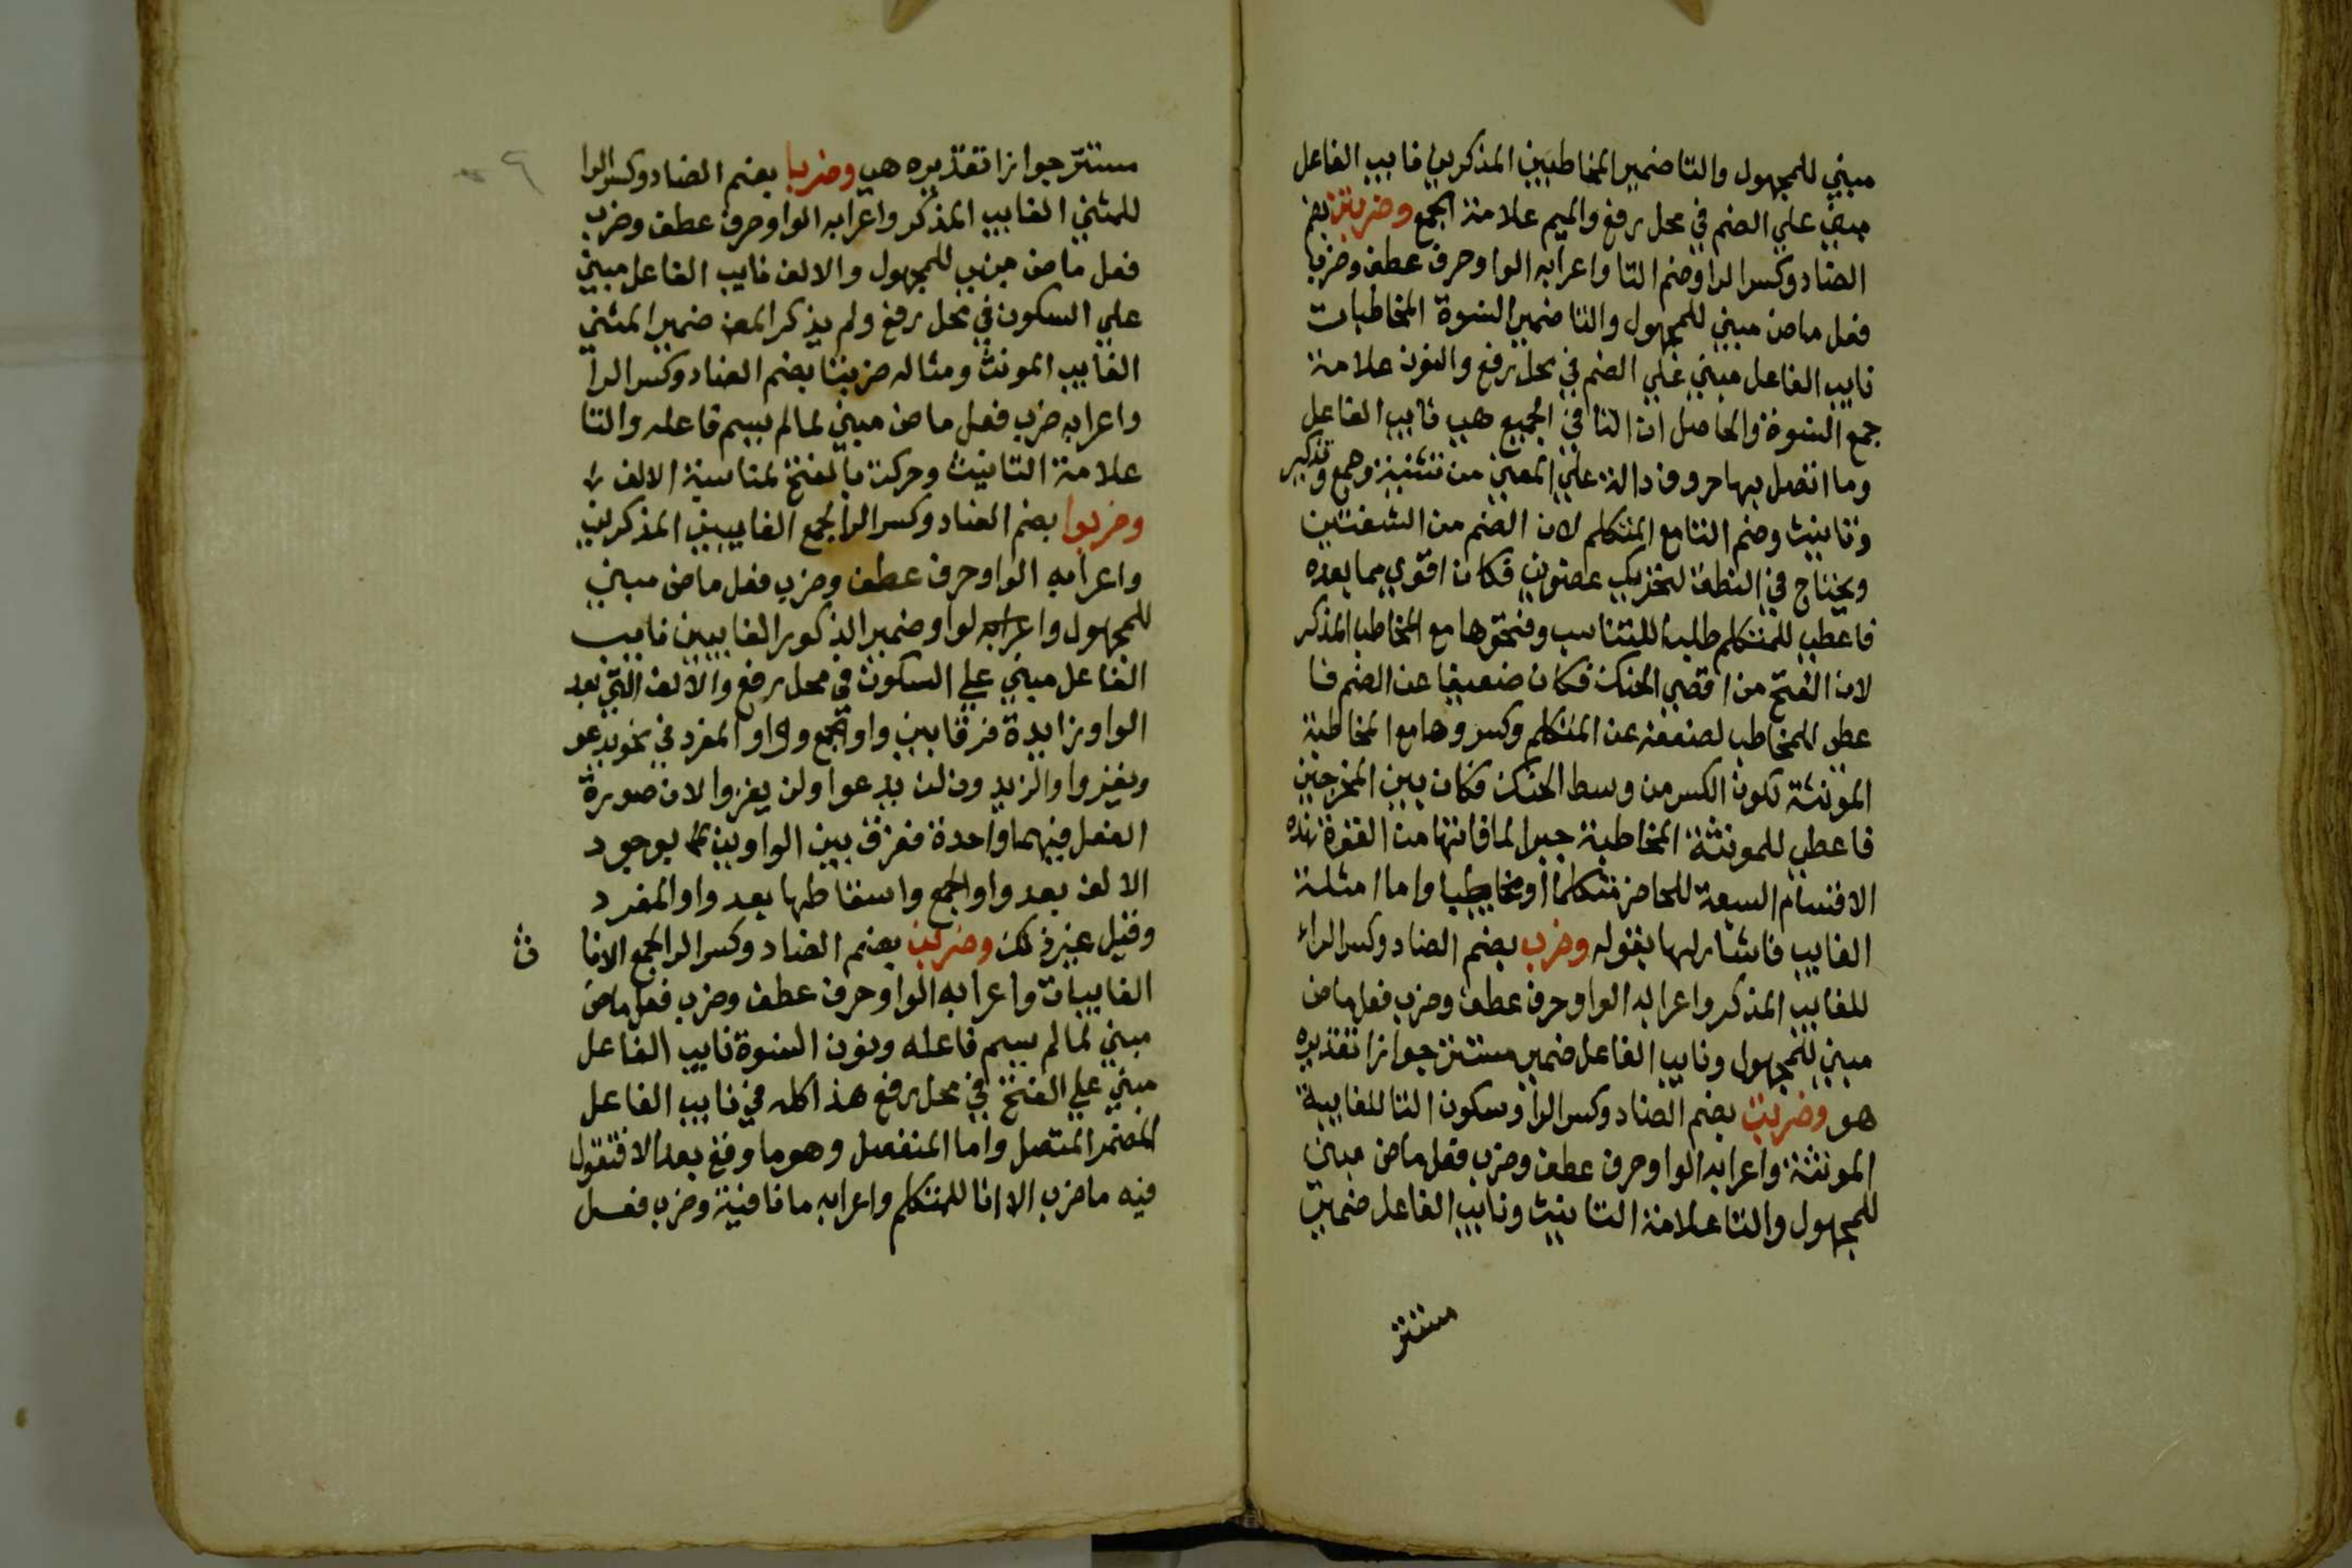 مبني للمجهول والتا ضمير المخاطبين المذكرين نايب الفاعل
مبني علي الضم في محل رفع والميم علامة الجمع وضربتن بضم
الضاد وكسر الرا وضم التا واعرابه الواو حرف عطف وضرب
فعل ماض مبني للمجهول والتا ضمير النسوة المخاطبات
نايب الفاعل مبني علي الضم في محل رفع والنون علامة
جمع النسوة والحاصل ان التا في الجميع هي نايب الفاعل
وما اتصل بها حروف دالة علي المعني من تثنية وجمع وتذكير
وتانيث وضم التا مع المتكلم لان الضم من الشفتين
ويحتاج في النطق لتحريك عضوين فكان اقوي مما بعده
فاعطي للمتكلم طلبا للتناسب وفتحوها مع المخاطب المذكر
لان الفتح من اقصي الحنك فكان ضعيفا عن الضم فا
عطي للمخاطب لضعفه عن المتكلم وكسروها مع المخاطبة
المونثة لكون الكسر من وسط الحنك فكان بين المخرجين
فاعطي للمونثة المخاطبة جبرا لما فاتها من القوة هذه
الاقسام السبعة للحاضر متكلما او مخاطبا واما امثلة
الغايب فاشار لها بقوله وضرب بضم الضاد وكسر الراء
للغايب المذكر واعرابه الواو حرف عطف وضرب فعل ماض
مبني للمجهول ونايب الفاعل ضمير مستتر جوازا تقديره
هو وضربت بضم الضاد وكسر الرا وسكون التا للغايبة
المونثة واعرابه الواو حرف عطف وضرب فعل ماض مبني
للمجهول والتا علامة التانيث ونايب الفاعل ضمير
مستتر
مستتر جوازا تقديره هي وضربا بضم الضاد وكسر الرا
للمثني الغايب المذكر واعرابه الواو حرف عطف وضرب
فعل ماض مبني للمجهول والالف نايب الفاعل مبني
علي السكون في محل رفع ولم يذكر المص ضمير المثني
الغايب المونث ومثاله ضربتا بضم الضاد وكسر الرا
واعرابه ضرب فعل ماض مبني لما لم يسم فاعله والتا
علامة التانيث وحركت بالفتح لمناسبة الالف
وضربوا بضم الضاد وكسر الرا لجمع الغايبين المذكرين
واعرابه الواو حرف عطف وضرب فعل ماض مبني
للمجهول واعرابه لواو ضمير الذكور الغايبين نايب
الفاعل مبني علي السكون في محل رفع والالف التي بعد
الواو زايدة فرقا بين واو الجمع وواو المفرد في نحو يدعو
ويغزوا والزيدون لن يدعوا ولن يغزوا لان صورة
الفعل فيهما واحدة ففرق بين الواوين بوجود
الالف بعد واو الجمع واسقاطها بعد واو المفرد
وقيل غير ذلك وضربن بضم الضاد وكسر الرا لجمع الانا
ث
الغايبات واعرابه الواو حرف عطف وضرب فعل ماض
مبني لما لم يسم فاعله ونون النسوة نايب الفاعل
مبني علي الفتح في محل رفع هذا كله في نايب الفاعل
المضمر المتصل واما المنفصل وهو ما وقع بعد الا فتقول
فيه ما ضرب الا انا للمتكلم واعرابه ما نافية وضرب فعل